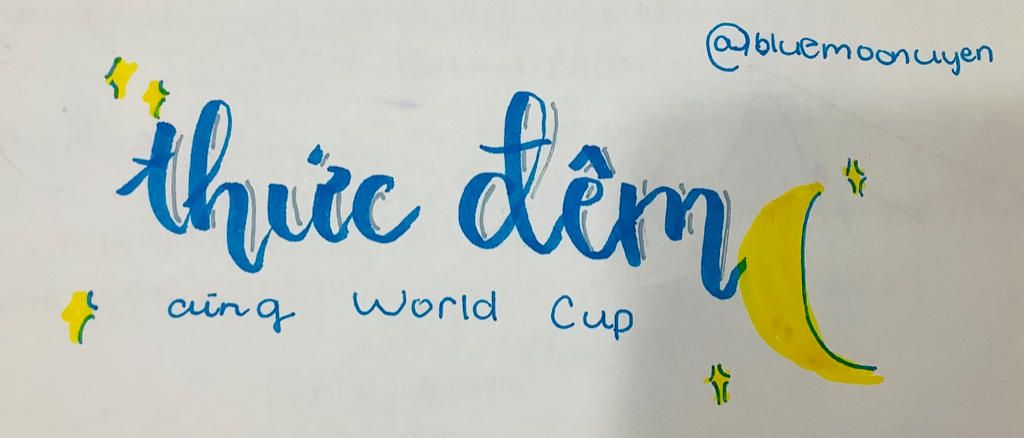 @bluemoonuyen
thức đêm
cùng World Cup